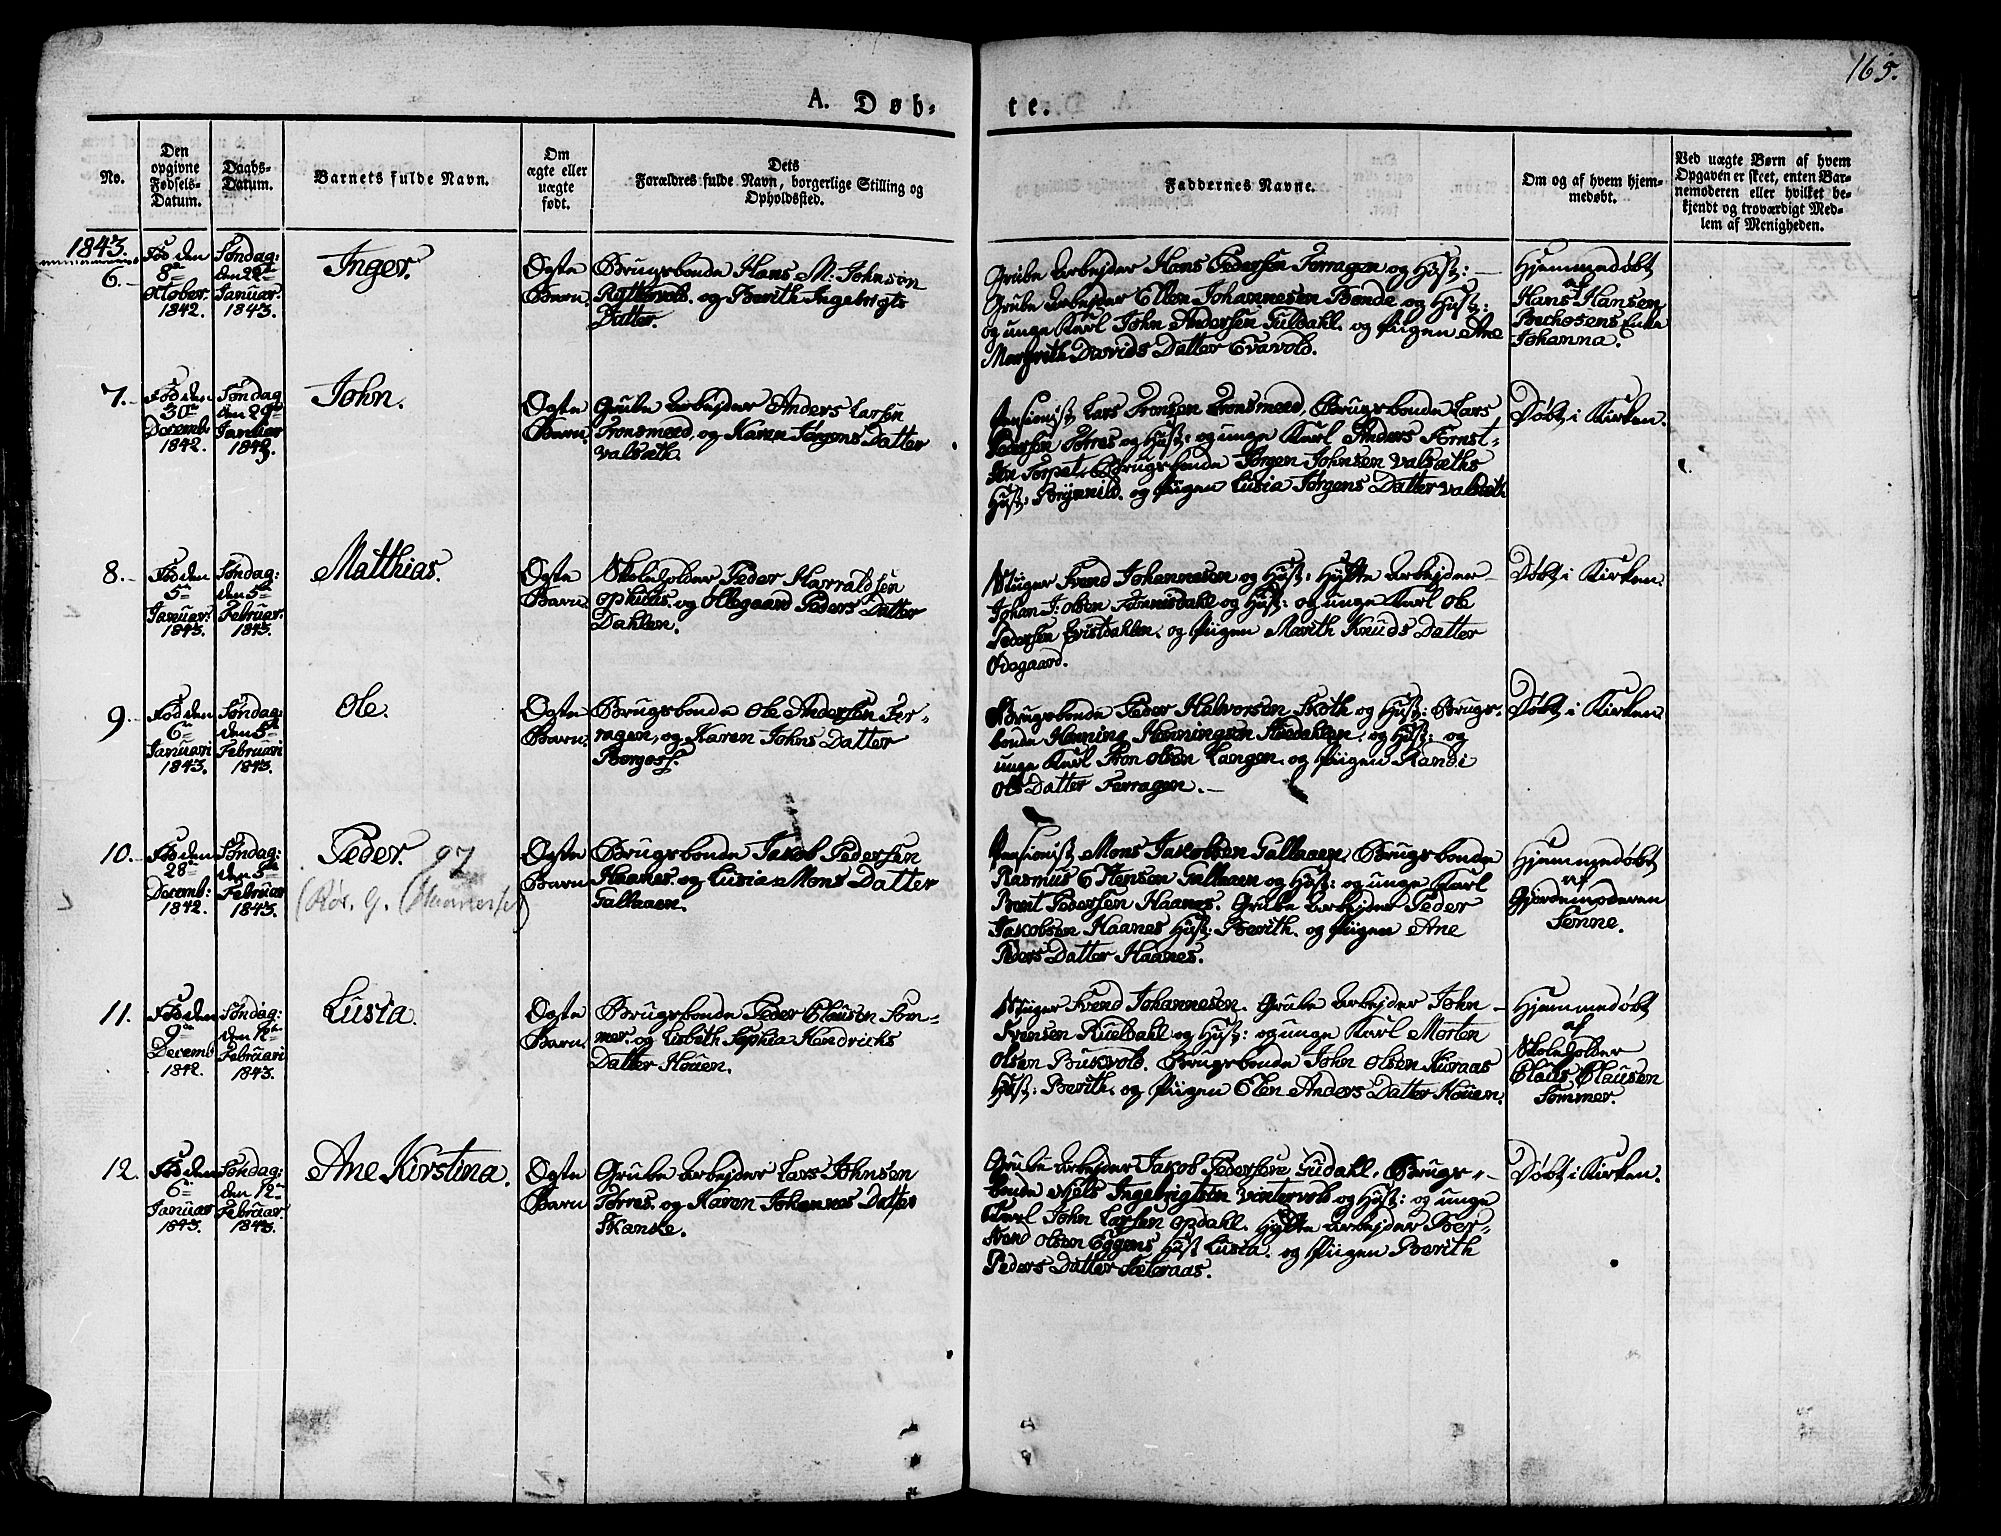 165.
A. Døb-
te.
No.
Den opgivne Fødsels-Datum.
Daabs-Datum.
Barnets fulde Navn.
Om ægte eller uægte født.
Dets
Forældres fulde Navn, borgerlige Stilling og
Opholdssted.
Faddernes Navne.
Om og af hvem hjem-
medøbt.
Ved uægte Børn af hvem
Opgaven er skeet, enten Bar-
nemoderen eller hvilket be-
kjendt og troværdigt Med-
lem af Menigheden.
1843.
6.
Fød den
8de
October.
1842.
Søndag:
den 22de
Januar:
1843.
Inger.
Ægte
Barn.
Brugsbonde Hans M: Johnsen
Ryttervold. og Berith Ingebrigts
Datter.
Grube Arbejder Hans Pedersen Ferragen og Hust:
Grube Arbejder Ellen Johannesen Bende og Hust:
og unge Karl John Andersen Guldahl. og Piigen Ane
Margrith Davids Datter Evavold.
Hjemmedøbt
af
Hans Hansen
Enke
Johanna.
7.
Fød den
30te
Decemb:
1842.
Søndag
den 29de
Januar
1843.
John.
Ægte
Barn.
Grube Arbejder Anders Larsen
Tronsmoed, og Karen Jørgens Datter
Valsæth.
Pensionist Lars Tronsen Tronsmoed, Brugsbonde Lars
Pedersen Torres og Hust: og unge Karl Anders Fornst-
Brugsbonde Jørgen Johnsen Valsæths
Hust: Brynnild. og Piigen Lusia Jørgens Datter Valsæth.
Døbt i Kirken.
8.
Fød den
5te
Januar:
1843.
Søndag:
den 5te
Februar.
1843.
Matthias.
Ægte
Barn.
Skoleholder Peder Harraldsen
Ophuus. og Ollegaard Peders Datter
Dahlen.
Stiiger Svend Johannesen og Hust: Hytte Arbejder
Johan J: Olsen og Hust: og unge Karl Ole
Pedersen og Piigen Marith Knuds Datter
Ødegaard.
Døbt i Kirken.
9.
Fød den
6te
Januari
1843.
Søndag:
den 5te
Februari
1843.
Ole.
Ægte
Barn.
Brugsbonde Ole Andersen Fer-
ragen, og Karen Johns Datter
Borgos.
Brugsbonde Peder Halvorsen Skoth og Hust: Brugs-
bonde Henning Henningsen og Hust: og
unge Karl Tron Olsen Langen. og Piigen Randi
Ols Datter Ferragen.
Døbt i Kirken.
10.
Fød den
28de
Decemb:
1842.
Søndag:
den 5te
Februar
1843.
Peder. 97
(Rør. G. (Haanes)
Ægte
Barn.
Brugsbonde Jakob Pedersen
Haanes. og Lusia Mons Datter
Galtaaen.
Pensionist Mons Jakobsen Galtaaen, Brugsbonde
Rasmus Estensen Galtaaen og Hust: og unge Karl
Bent Pedersen Haanes. Grube Arbejder Peder
Jakobsen Haanes Hust: Berith. og Piigen Ane
Peders Datter Haanes.
Hjemmedøbt
af
Gjordemoderen
Sønne.
11.
Fød den
9de
Decemb
1842.
Søndag:
den 12te
Februari
1843.
Lusia.
Ægte
Barn.
Brugsbonde Peder Clausen Som-
mer. og Lisbeth Sophia Hendrichs
Datter Houen.
Stiiger Svend Johannesen. Grube Arbejder John
Svensen Rueldahl og Hust: og unge Karl Morten
Olsen Bukvold. Brugsbonde John Olsen Kuraas
Hust: Berith. og Piigen Elen Anders Datter Houen.
Hjemmedøbt
af
Skoleholder
Claus Clausen
Sommer.
12.
Fød den
6te
Januar
1843.
Søndag:
den 12te
Februar.
1843.
Ane Kirstina.
Ægte
Barn
Grube Arbejder Lars Johnsen
Torres. og Karen Johannes Datter
Skanke.
Grube Arbejder Jakob Pedersen Gudahl. Brugs-
bonde Niels Ingebrigtsen Vintervold og Hust: og unge
Karl John Larsen Opdahl. Hytte Arbejder Ber-
Svend Olsen Eggens Hust Lusia. og Piigen Berith
Peders Datter Sætraas.
Døbt i Kirken.